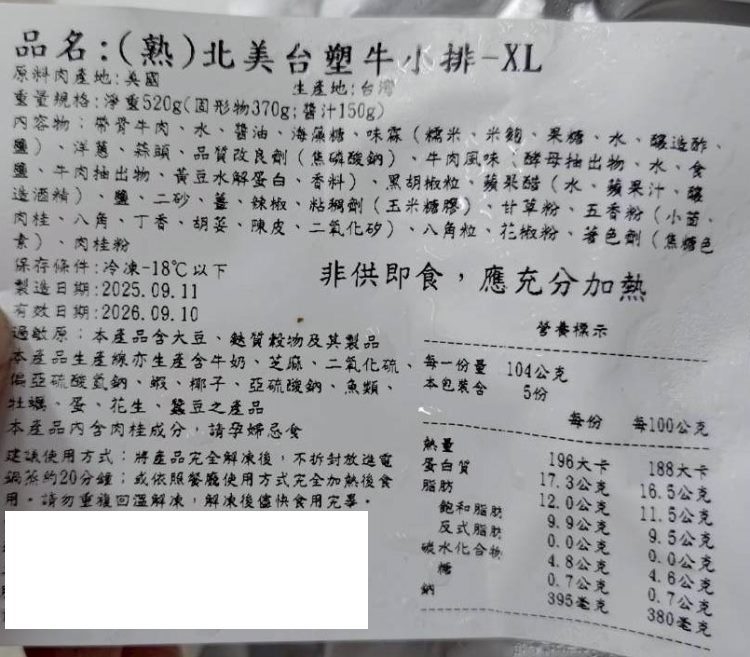 品名:(熟)北美台塑牛小排-XL
原料肉產地:美國 生產地:台灣
重量規格:淨重520g(固形物370g;醬汁150g)
內容物:帶骨牛肉、水、醬油、海藻糖、味霖(糯米、米麴、果糖、水、釀造酢、
鹽)、洋蔥、蒜頭、品質改良劑(焦磷酸鈉)、牛肉風味(酵母抽出物、水、食
鹽、牛肉抽出物、黃豆水解蛋白、香料)、黑胡椒粒、蘋果醋(水、蘋果汁、釀
造酒精)、鹽、二砂、薑、辣椒、粘稠劑(玉米糖膠)、甘草粉、五香粉(小茴、
肉桂、八角、丁香、胡荽、陳皮、二氧化矽)、八角粒、花椒粉、著色劑(焦糖色
素)、肉桂粉
保存條件:冷凍-18℃以下
製造日期:2025.09.11
有效日期:2026.09.10
非供即食,應充分加熱
過敏原:本產品含大豆、麩質穀物及其製品
本產品生產線亦生產含牛奶、芝麻、二氧化硫、
偏亞硫酸氫鈉、蝦、椰子、亞硫酸鈉、魚類、
牡蠣、蛋、花生、蠶豆之產品
本產品內含肉桂成分,請孕婦忌食
建議使用方式:將產品完全解凍後,不拆封放進電
鍋蒸約20分鐘;或依照餐廳使用方式完全加熱後食
用。請勿重複回溫解凍,解凍後儘快食用完畢。
營養標示
每一份量 104公克
本包裝含 5份
每份 每100公克
熱量 196大卡 188大卡
蛋白質 17.3公克 16.5公克
脂肪 12.0公克 11.5公克
飽和脂肪 9.9公克 9.5公克
反式脂肪 0.0公克 0.0公克
碳水化合物 4.8公克 4.6公克
糖 0.7公克 0.7公克
鈉 395毫克 380毫克